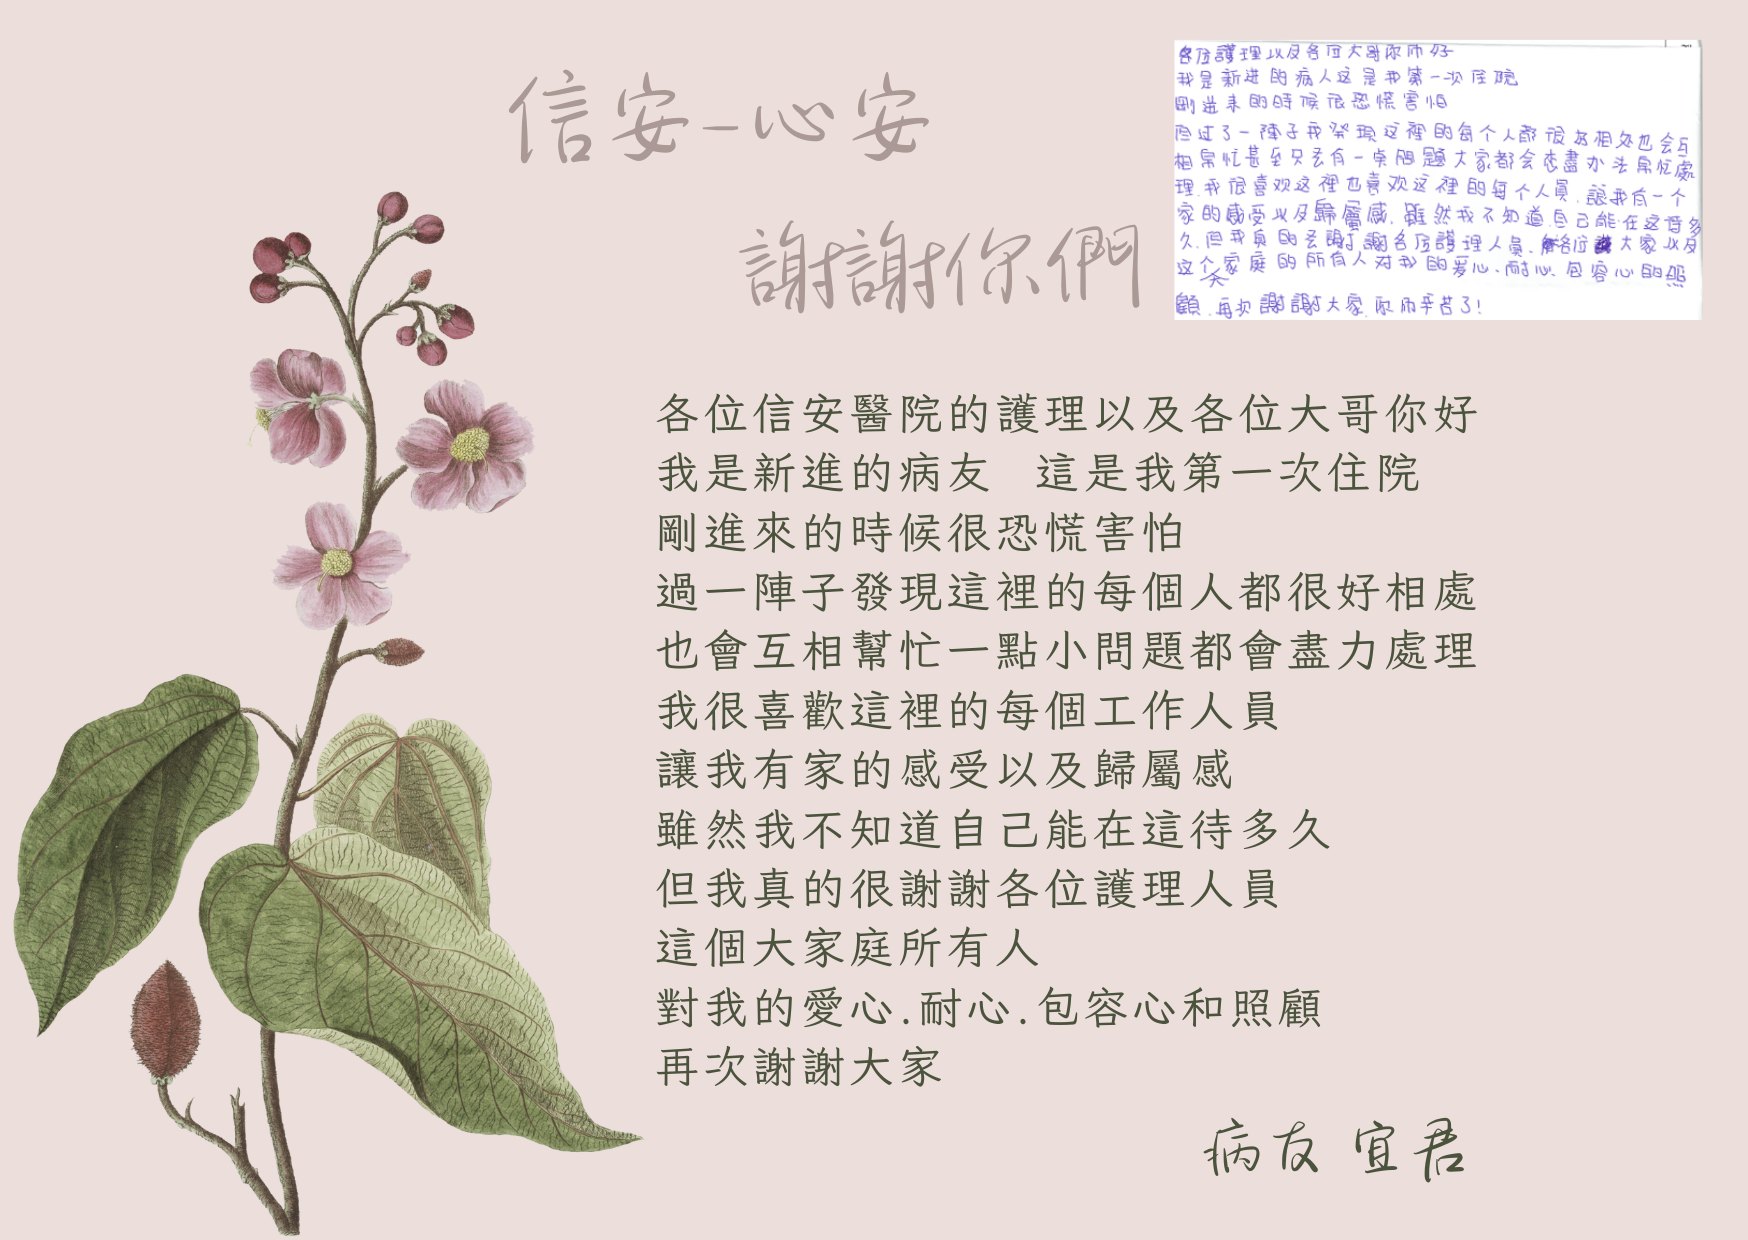 信安-心安
謝謝你們
各位護理以及各位大哥你们好
我是新进的病人这是我第一次住院
剛进来的時候很恐慌害怕
但过了一陣子我发現这裡的每个人都很好相处也会互
相帮忙甚至只要有一点問題大家都会想盡办法帮忙處
理.我很喜欢这裡也喜欢这裡的每个人員.讓我有一个
家的感受以及歸屬感.雖然我不知道自己能在这待多
久.但我真的要謝謝各位護理人員.各位大家以及
这个大家庭的所有人对我的爱心.耐心.包容心的照
顧.再次謝謝大家.你们辛苦了!
各位信安醫院的護理以及各位大哥你好
我是新進的病友 這是我第一次住院
剛進來的時候很恐慌害怕
過一陣子發現這裡的每個人都很好相處
也會互相幫忙一點小問題都會盡力處理
我很喜歡這裡的每個工作人員
讓我有家的感受以及歸屬感
雖然我不知道自己能在這待多久
但我真的很謝謝各位護理人員
這個大家庭所有人
對我的愛心.耐心.包容心和照顧
再次謝謝大家
病友 宜君